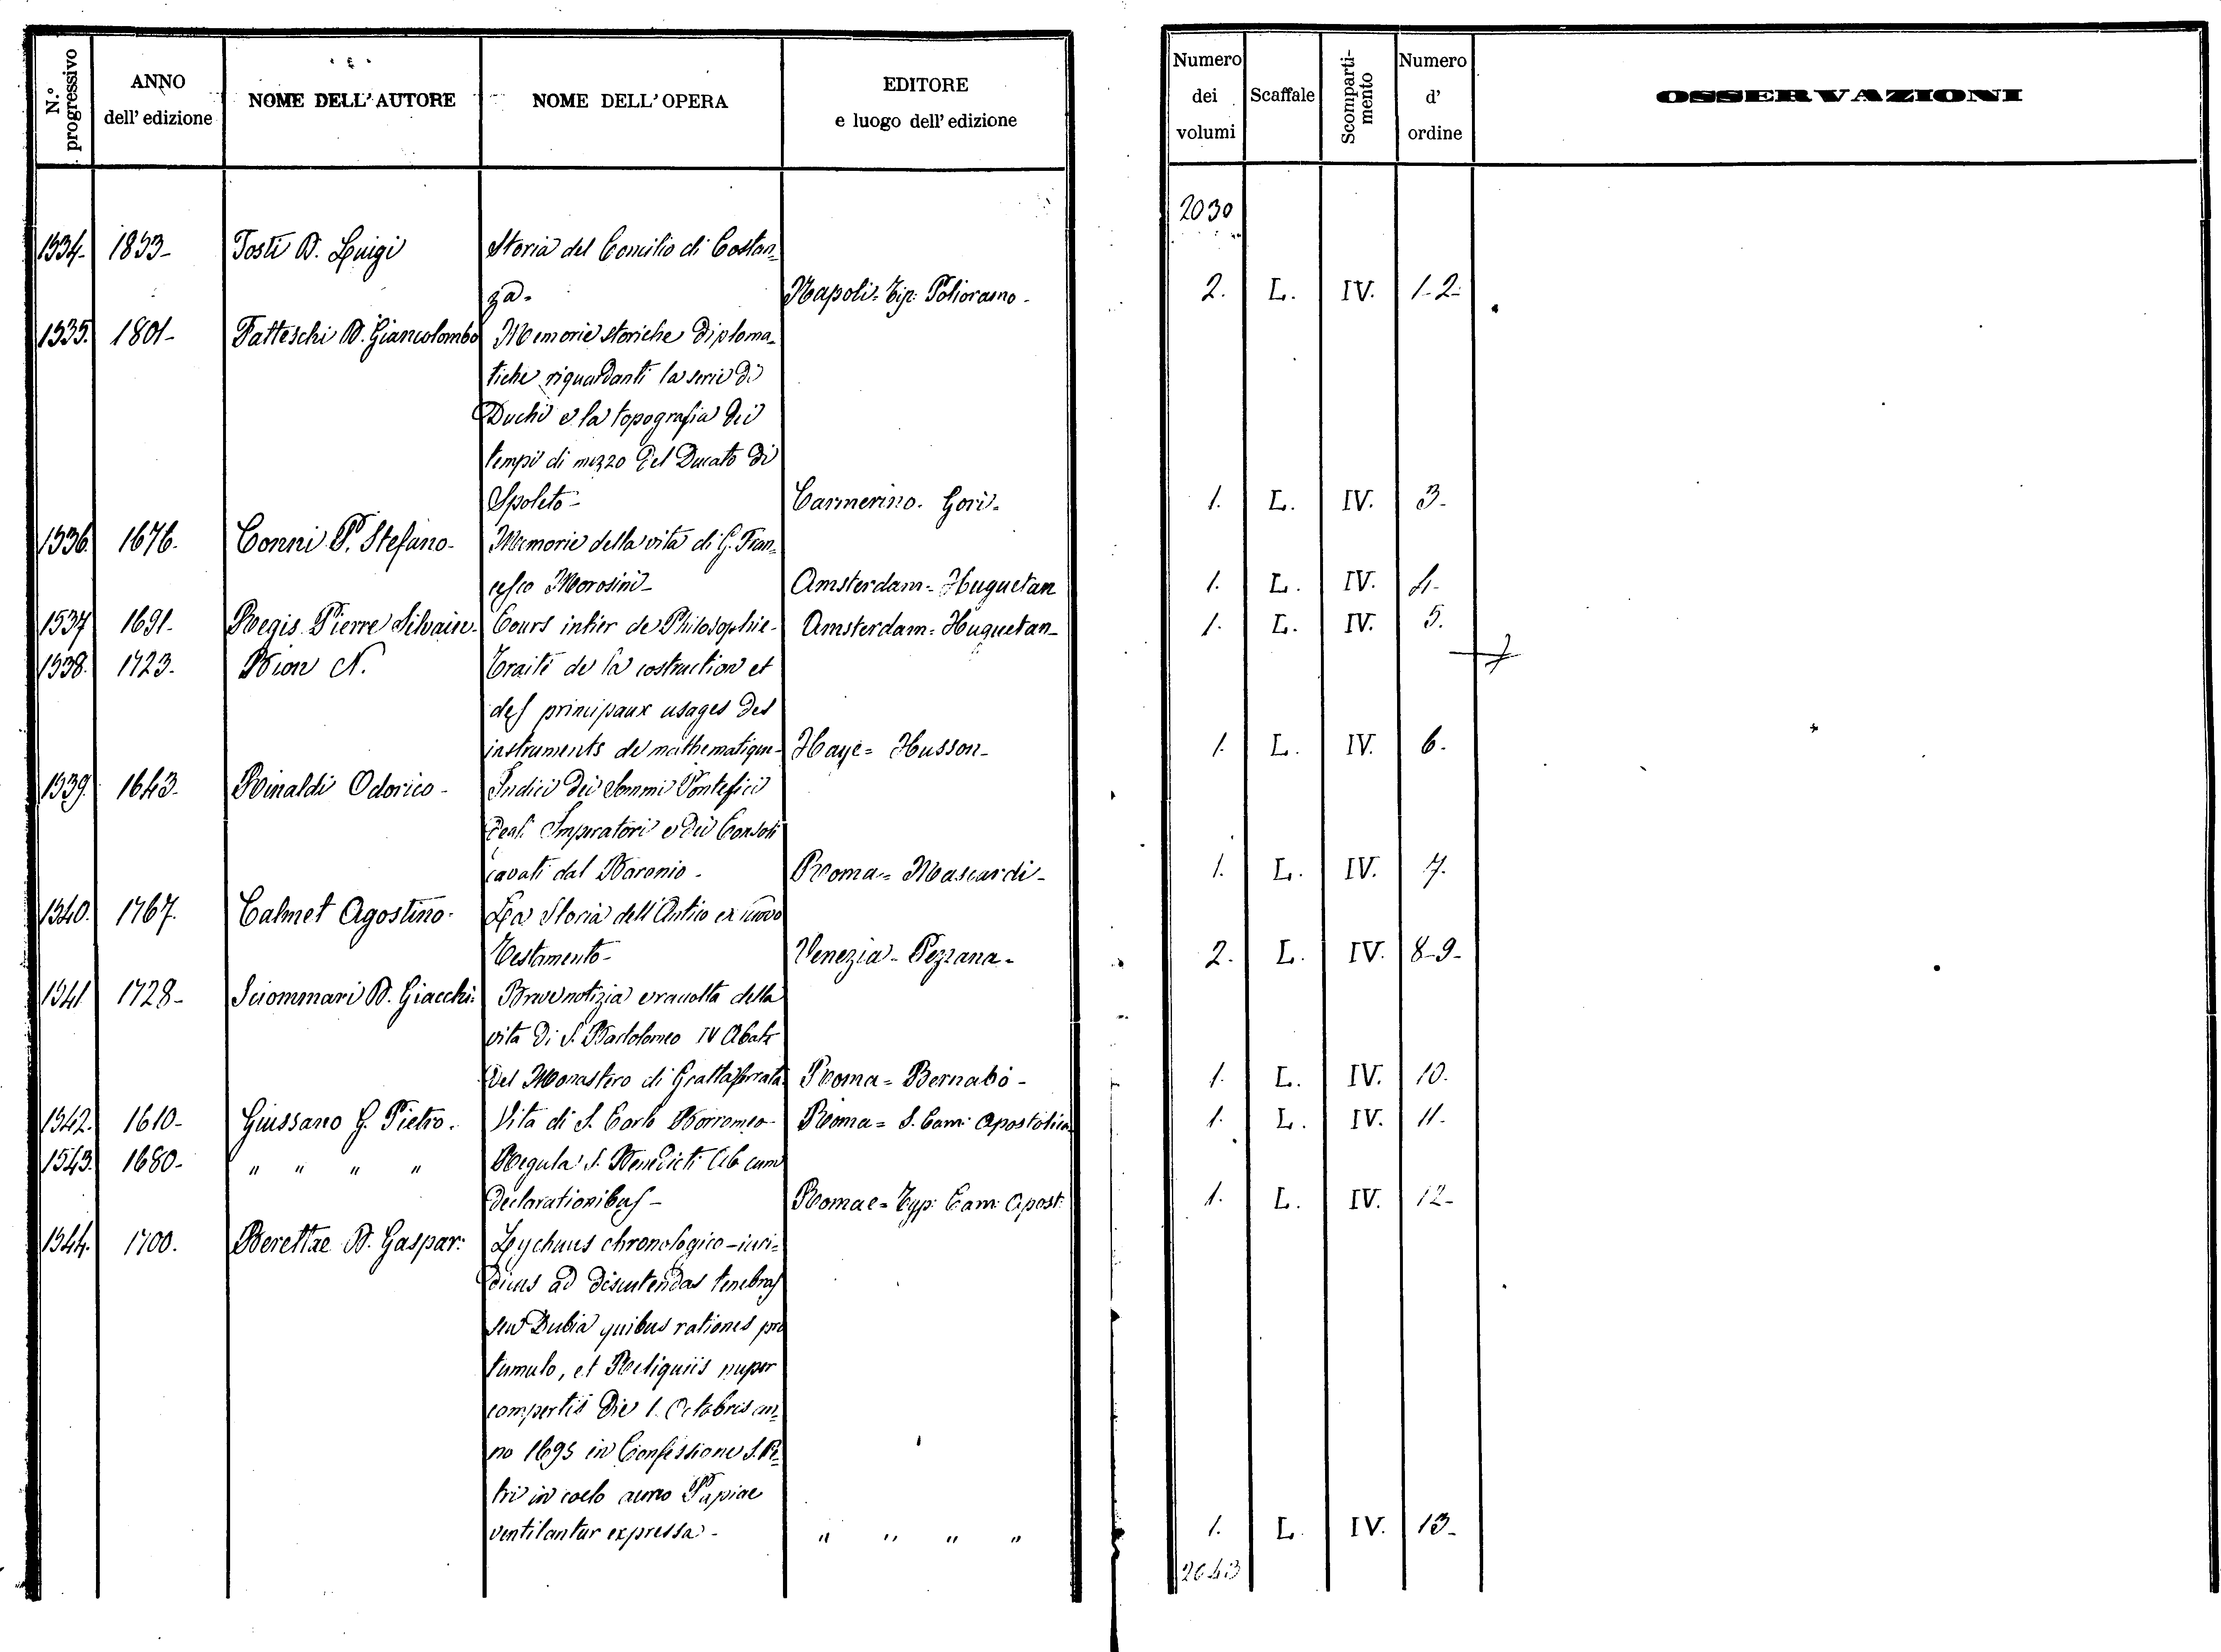 N.° progressivo
ANNO dell' edizione
NOME DELL' AUTORE
NOME DELL' OPERA
EDITORE e luogo dell' edizione
Numero dei volumi
Scaffale
Scomparti-mento
Numero d' ordine
OSSERVAZIONI
2030
1534. 1853- Tosti D. Luigi Storia del Concilio di Costan=
za. Napoli= Tip: Polioramo - 2. L. IV. 1-2-
1535. 1801- Fatteschi D. Giancolombo Memorie storiche diploma=
tiche riguardanti la serie di
Duchi e la topografia dei
tempi di mezzo del Ducato di
Spoleto- Camerino. Gori- 1. L. IV. 3-
1536. 1676. Conni P. Stefano- Memorie della vita di G. Fran=
cesco Morosini- Amsterdam= Huguetan 1. L. IV. 4-
1537 1691- Regis Pierre Silvain- Cours intier de Philosophie- Amsterdam= Huguetan- 1. L. IV. 5.
1538. 1723. Bion N. Traité de la costruction et
des principaux usages des
instruments de mathematique- Haye= Husson- 1. L. IV. 6.
1539. 1643- Rinaldi Odorico- Indici dei Sommi Pontefici
degli Imperatori e dei Consoli
cavati dal Baronio- Roma= Mascardi- 1. L. IV. 7.
1540. 1767. Calmet Agostino- La Storia dell'Antico e nuovo
Testamento- Venezia- Pezzana- 2. L. IV. 8-9-
1541 1728- Sciommari D. Giacchi: Breve notizia e raccolta della
vita di S. Bartolomeo IV Abate
del Monastero di Grottaferrata Roma= Bernabò- 1. L. IV. 10.
1542. 1610- Giussano G. Pietro. Vita di S. Carlo Borromeo- Roma= S. Cam: Apostolica 1. L. IV. 11.
1543. 1680- " " " " Regula S. Benedicti Ab cum
declarationibus- Romae= Typ: Cam: Apost: 1. L. IV. 12-
1544. 1700. Berettae D. Gaspar: Lychnus chronologico-iuri=
dicus ad discutendas tenebras
seu Dubia quibus rationes pro
tumulo, et Reliquiis nuper
compertis die 1. Octobris an=
no 1695 in Confessione S. Pe=
tri in coelo aureo Papiae
ventilantur expressa- " " " " 1. L. IV. 13-
2643